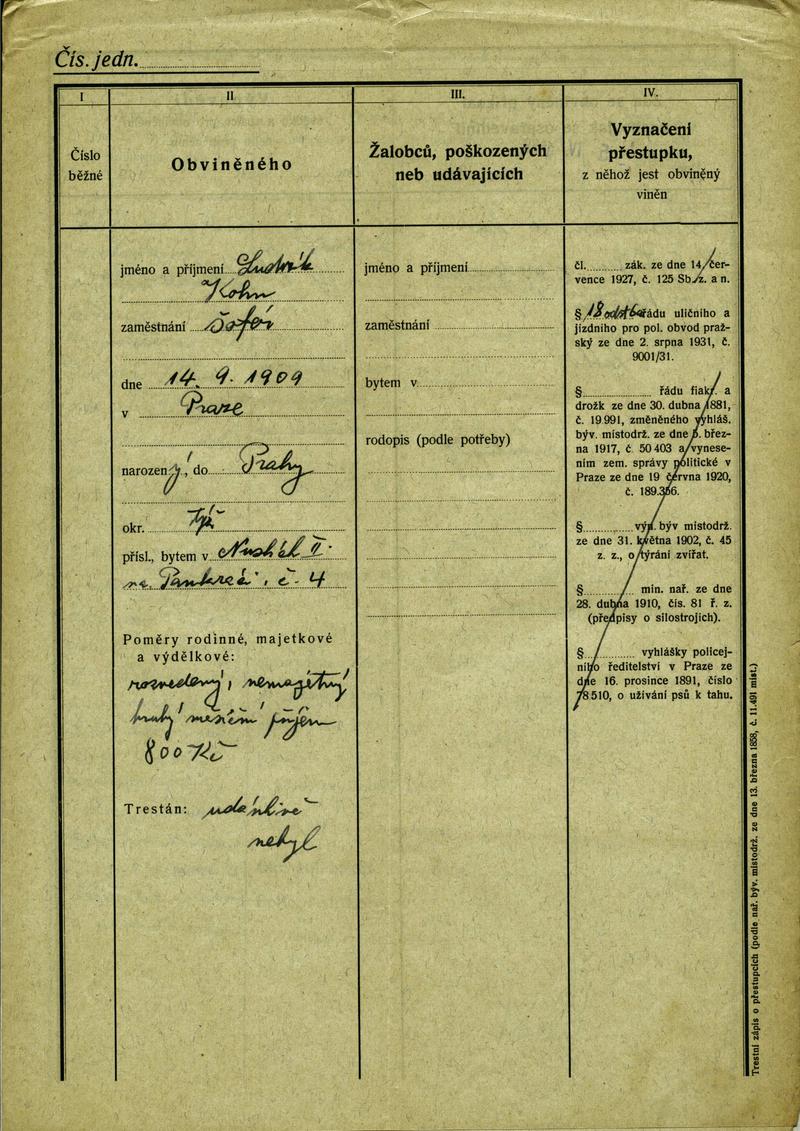 Čís. jedn.
I
II.
III.
IV.
Číslo
běžné
Obviněného
Žalobců, poškozených
neb udávajících
Vyznačení
přestupku,
z něhož jest obviněný
viněn
jméno a příjmení Ludvík
Kohn
zaměstnání Šofér
dne 14. 9. 1909
v Praze
narozený, do Prahy
okr. týž
přísl., bytem v Nuslích II.
na Pankráci, č. 4
Poměry rodinné, majetkové
a výdělkové:
rozvedený, nemajetný
hrubý měsíční příjem
800 Kč
Trestán: údánlivě
nebyl
jméno a příjmení
zaměstnání
bytem v
rodopis (podle potřeby)
čl. zák. ze dne 14 čer-
vence 1927, č. 125 Sb. z. a n.
§ 18 řádu uličního a
jízdního pro pol. obvod praž-
ský ze dne 2. srpna 1931, č.
9001/31.
§ řádu fiakr. a
drožk ze dne 30. dubna 1881,
č. 19 991, změněného vyhláš.
býv. místodrž. ze dne 5. břez-
na 1917, č. 50 403 a vynese-
ním zem. správy politické v
Praze ze dne 19 června 1920,
č. 189.366.
§ výn. býv místodrž.
ze dne 31. května 1902, č. 45
z. z., o týrání zvířat.
§ min. nař. ze dne
28. dubna 1910, čís. 81 ř. z.
(předpisy o silostrojích).
§ vyhlášky policej-
ního ředitelství v Praze ze
dne 16. prosince 1891, číslo
78 510, o užívání psů k tahu.
Trestní zápis o přestupcích (podle nař. býv. místodrž. ze dne 13. března 1858, č. 11.491 míst.)